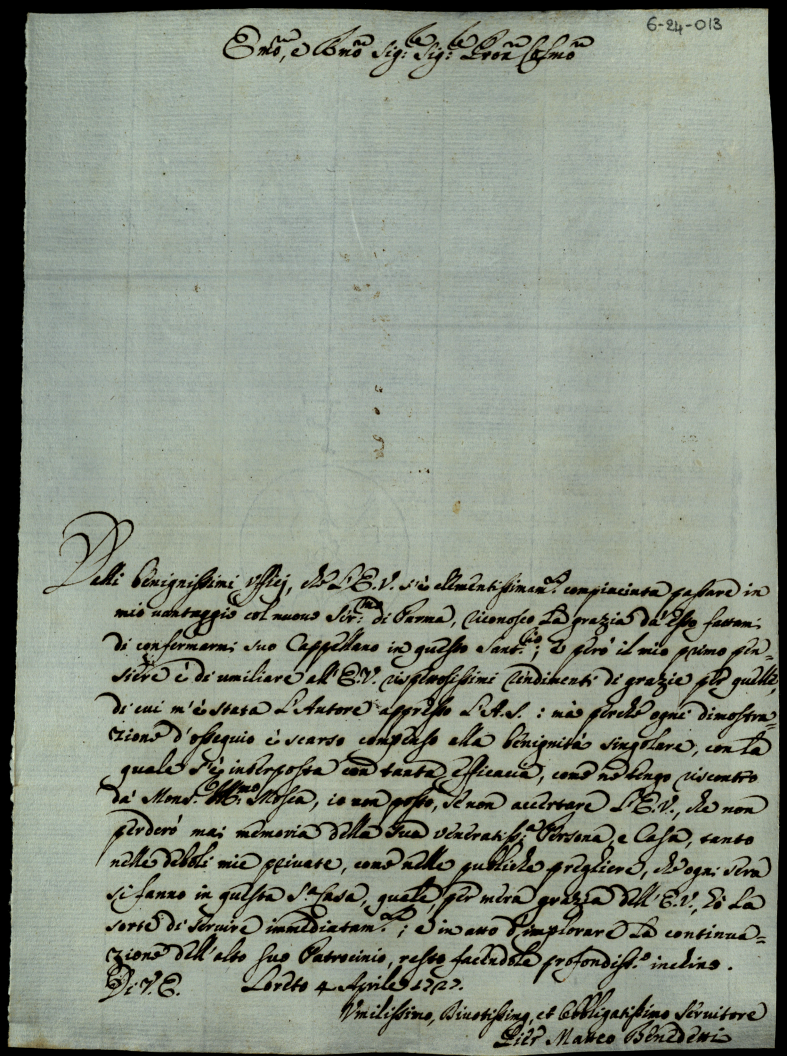 6-24-013
Emo, e Rmo Sig:re Sig:re Pron Colmo
Dalli benignissimi Uffici, che L'E.V. s'è clementissimam.te compiaciuta passare in
mio vantaggio col nuovo Ser:mo di Parma, riconosco la grazia da Esso fattami
di confermarmi suo Cappellano in questo Sant.rio; e però il mio primo pen=
siere è di umiliare all'E.V. rispettosissimi rendimenti di grazie per quella,
di cui m'è stata L'Autore appresso L'A.S.: mà perche ogni dimostra=
zione d'ossequio è scarso compenso alla benignità singolare, con la
quale s'è interposta con tanta efficacia, come ne tengo riscontro
da Mons.r Mosca, io non posso, se non accertare L'E.V., che non
perderò mai memoria della Sua veneratiss:a Persona, e Casa, tanto
nelle deboli mie private, come nelle publiche preghiere, che ogni sera
si fanno in questa S.a Casa, quale, per mera grazia dell'E.V., hò la
sorte di servire immediatam.te; e in atto d'implorare la continua=
zione dell'alto suo Patrocinio, resto facendole profondiss.o inchino.
Di V.E. Loreto 4 Aprile 1727.
Umilissimo, Divotissimo, et Obbligatissimo Servitore
Pier Matteo Benedetti